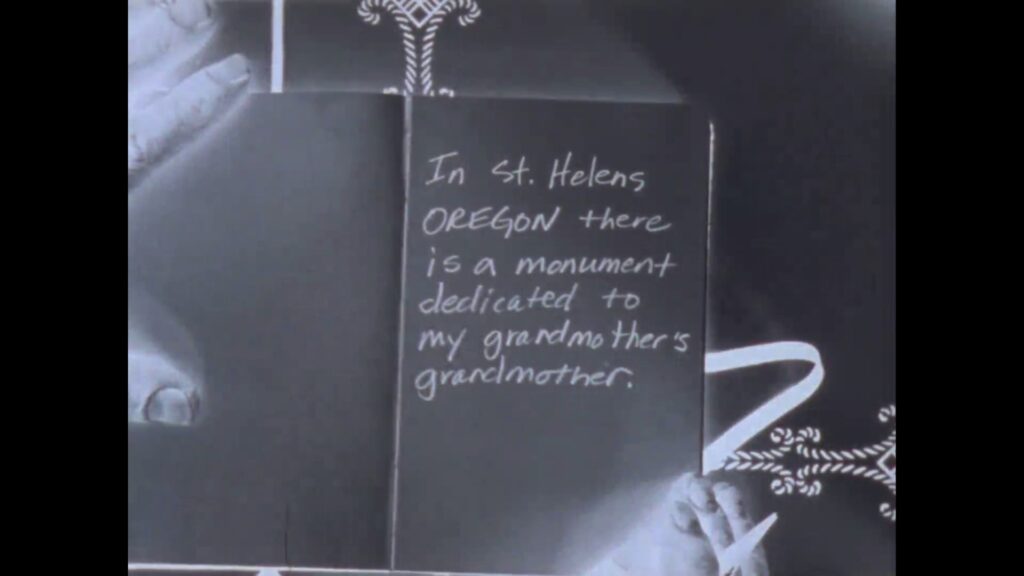 In St. Helens
OREGON there
is a monument
dedicated to
my grandmother's
grandmother.